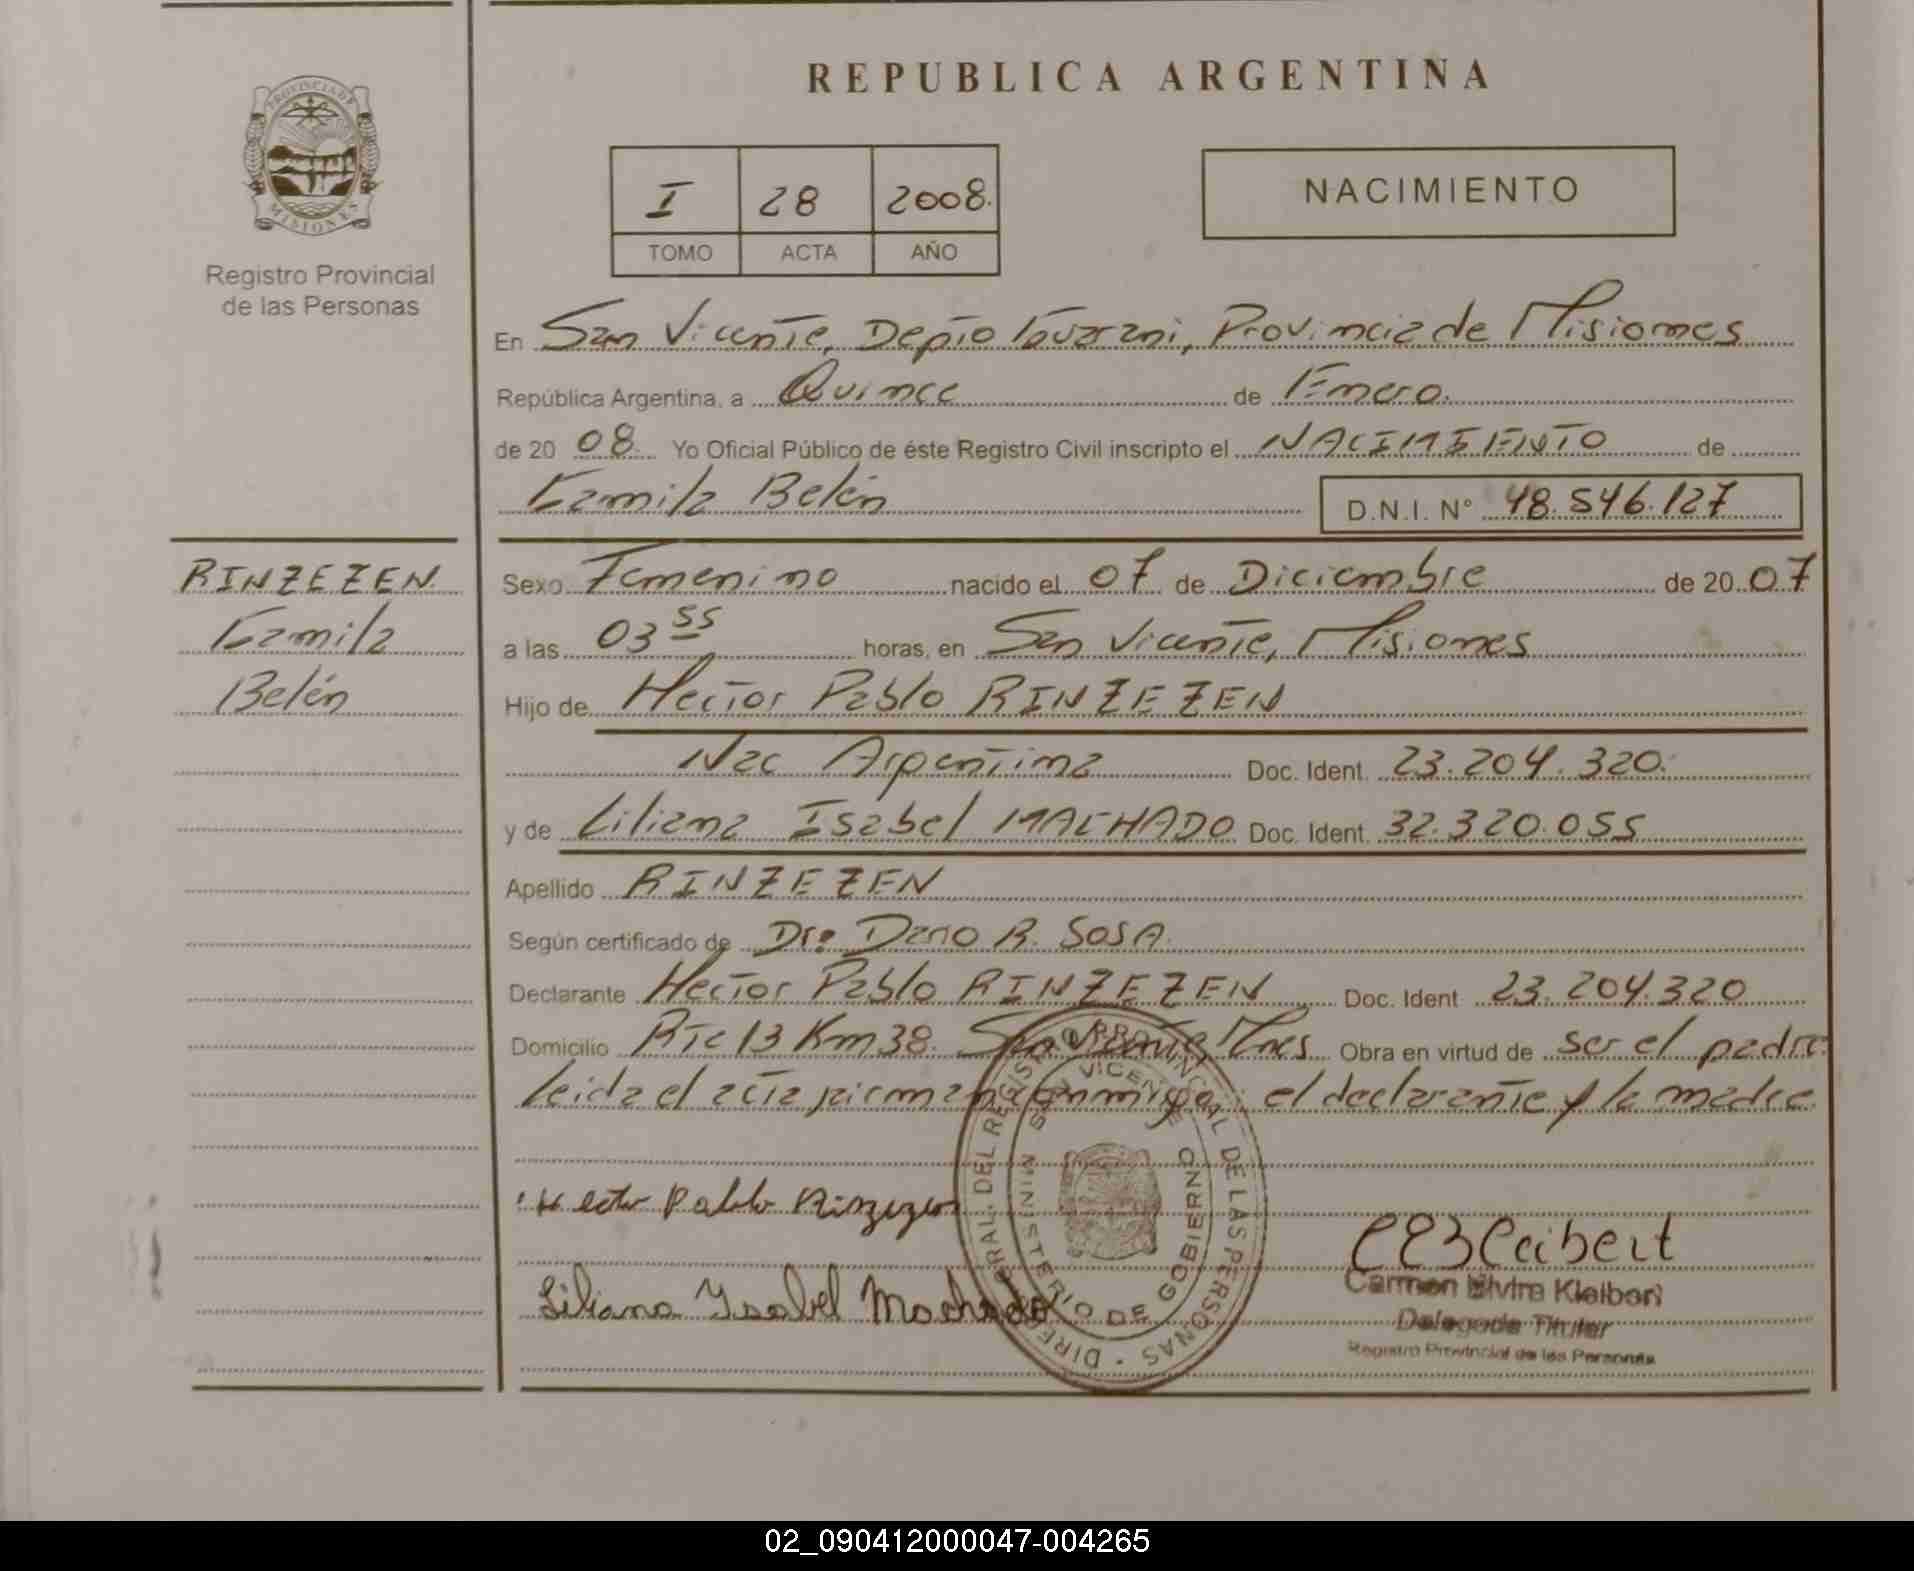 REPUBLICA ARGENTINA
PROVINCIA DE
MISIONES
Registro Provincial
de las Personas
I 28 2008.
TOMO ACTA AÑO
NACIMIENTO
En San Vicente, Depto Guarani, Provincia de Misiones
República Argentina, a Quince de Enero.
de 20 08. Yo Oficial Público de éste Registro Civil inscripto el NACIMIENTO de
Kamila Belén D.N.I. N° 48.546.127
RINZEZEN
Kamila
Belén
Sexo Femenino nacido el 07 de Diciembre de 20 07
a las 03 55 horas, en San Vicente, Misiones
Hijo de Hector Pablo RINZEZEN
Nac Argentina Doc. Ident. 23.204.320.
y de Liliana Isabel MACHADO Doc. Ident. 32.320.055
Apellido RINZEZEN
Según certificado de Dr. Dario R. SOSA
Declarante Hector Pablo RINZEZEN Doc. Ident 23.204.320
Domicilio Rte 13 Km 38. San Vicente, Mnes Obra en virtud de ser el padre
leida el acta firman conmigo el declarante y la madre
Hector Pablo Rinzezen
Liliana Ysabel Machado
DIRE RAL. DEL REGISTRO PROVINCIAL DE LAS PERSONAS
SAN VICENTE
MINISTERIO DE GOBIERNO
Carmen Elvira Kleibert
Delegada Titular
Registro Provincial de las Personas
02_090412000047-004265